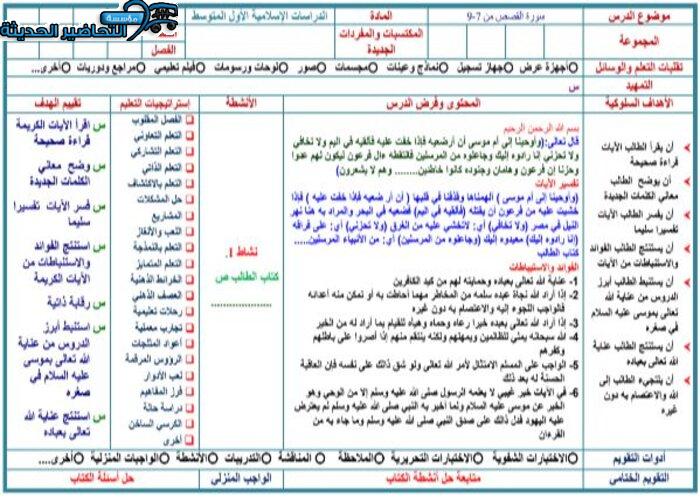 مؤسسة
التحاضير الحديثة
موضوع الدرس
سورة القصص من 7-9
المادة
الدراسات الإسلامية الأول المتوسط
المجموعة
المكتسبات والمفردات
الجديدة
الفصل
تقنيات التعلم والوسائل
أجهزة عرض
جهاز تسجيل
نماذج وعينات
مجسمات
صور
لوحات ورسومات
فيلم تعليمي
مراجع ودوريات
أخرى....
التمهيد
س
الأهداف السلوكية
المحتوى وفرض الدرس
الأنشطة
إستراتيجيات التعليم
تقييم الهدف
أن يقرأ الطالب الآيات
قراءة صحيحة
أن يوضح الطالب
معاني الكلمات الجديدة
أن يفسر الطالب الآيات
تفسيرا سليما
أن يستنتج الطالب الفوائد
والاستنباطات من الآيات
أن يستنبط الطالب أبرز
الدروس من عناية الله
تعالى بموسى عليه السلام
في صغره
أن يستنتج الطالب عناية
الله تعالى بعباده
أن يلتجيء الطالب إلى
الله والاعتصام به دون
غيره
بسم الله الرحمن الرحيم
قال تعالى:(وأوحينا إلى أم موسى أن أرضعيه فإذا خفت عليه فألقيه في اليم ولا تخافي
ولا تحزني إنا رادوه إليك وجاعلوه من المرسلين فالتقطه ءال فرعون ليكون لهم عدوا
وحزنا إن فرعون وهامان وجنوده كانوا خاطئين......... وهم لا يشعرون)
تفسير الآيات
(وأوحينا إلى أم موسى ) ألهمناها وقذفنا في قلبها ( أن أرضعيه فإذا خفت عليه ) فإذا
خشيت عليه من فرعون أن يقتله (فألقيه في اليم) فضعيه في البحر والمراد به هنا نهر
النيل في مصر (ولا تخافي) أي: لاتخشي عليه من الغرق (ولا تحزني) أي: على فراقه
(إنا رادوه إليك) معيدوه إليك (وجاعلوه من المرسلين) أي: من الأنبياء المرسلين.....
كتاب الطالب
الفوائد والاستنباطات
1- عناية الله تعالى بعباده وحمايته لهم من كيد الكافرين
2- إذا أراد الله نجاة عبده سلمه من المخاطر مهما أحاطت به أو تمكن منه أعدائه
فالواجب اللجوء إليه والاعتصام به دون غيره
3- إذا أراد الله تعالى بعبده خيرا رعاه وحماه وهيأه للقيام بما أراد له من الخير
4- الله سبحانه يملي للظالمين ويمهلهم ولكنه ينتقم منهم إذا أصروا على باطلهم
وكفرهم
5- الواجب على المسلم الامتثال لأمر الله تعالى ولو شق ذالك على نفسه فإن العاقبة
الحسنة له بعد ذلك
6- في الآيات خبر غيبي لا يعلمه الرسول صلى الله عليه وسلم إلا من الوحي وهو
الخبر عن موسى عليه السلام ولما أخبر به النبي صلى الله عليه وسلم لم يعترض
اليهود فدل ذالك على صدق النبي صلى الله عليه وسلم وما جاء به من
القرءان
نشاط 1.
كتاب الطالب ص
................
الفصل المقلوب
التعلم التعاوني
التعلم التشاركي
التعلم الذاتي
التعلم بالاكتشاف
حل المشكلات
المشاريع
اللعب والألغاز
التعلم بالنمذجة
التعلم المتمايز
الخرائط الذهنية
العصف الذهني
رحلات تعليمية
تجارب معملية
أعواد المثلجات
الرؤوس المرقمة
لعب الأدوار
فرز المفاهيم
دراسة حالة
الكرسي الساخن
أخرى
س اقرأ الآيات الكريمة
قراءة صحيحة
س وضح معاني
الكلمات الجديدة
س فسر الآيات تفسيرا
سليما
س استنتج الفوائد
والاستنباطات من
الآيات الكريمة
س رقابة ذاتية
س استنبط أبرز
الدروس من عناية
الله تعالى بموسى
عليه السلام في
صغره
س استنتج عناية الله
تعالى بعباده
أدوات التقويم
الاختبارات الشفوية
الاختبارات التحريرية
الملاحظة
المناقشة
التدريبات
الأنشطة
الواجبات المنزلية
أخرى....
التقويم الختامى
متابعة حل أنشطة الكتاب
الواجب المنزلى
حل أسئلة الكتاب